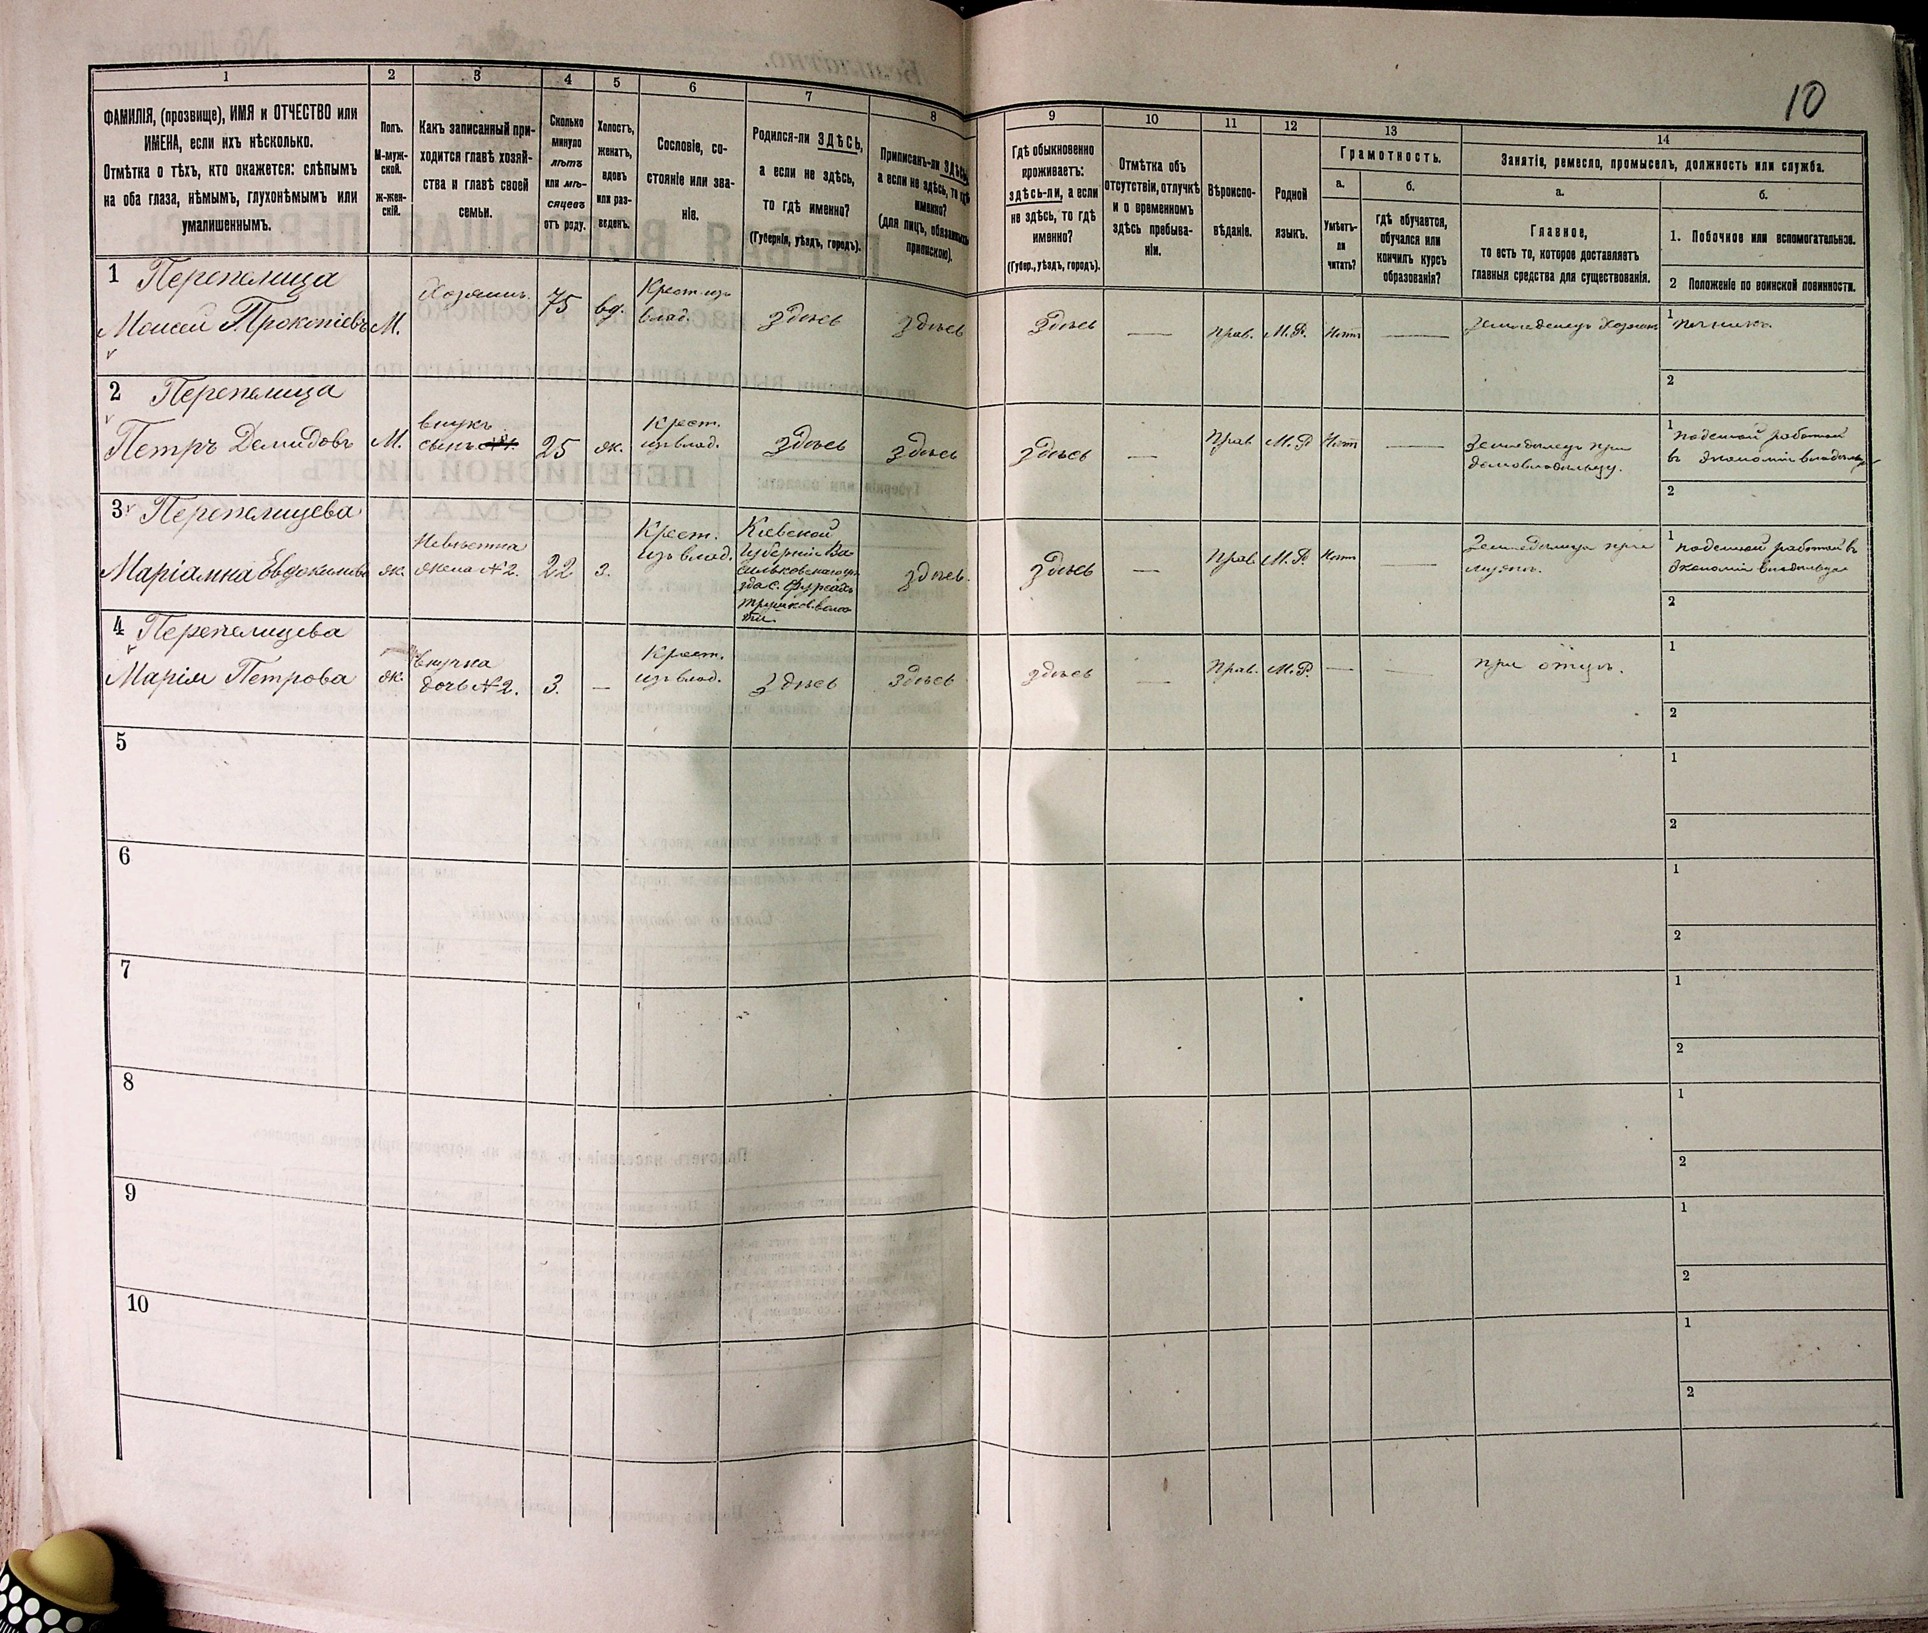 10
1
ФАМИЛІЯ, (прозвище), ИМЯ и ОТЧЕСТВО или
ИМЕНА, если ихъ нѣсколько.
Отмѣтка о тѣхъ, кто окажется: слѣпымъ
на оба глаза, нѣмымъ, глухонѣмымъ или
умалишеннымъ.
2
Полъ.
М-муж-
ской.
ж-жен-
скій.
3
Какъ записанный при-
ходится главѣ хозяй-
ства и главѣ своей
семьи.
4
Сколько
минуло
лѣтъ
или мѣ-
сяцевъ
отъ роду.
5
Холостъ,
женатъ,
вдовъ
или раз-
веденъ.
6
Сословіе, со-
стояніе или зва-
ніе.
7
Родился-ли ЗДѢСЬ,
а если не здѣсь,
то гдѣ именно?
(Губернія, уѣздъ, городъ).
8
Приписанъ-ли ЗДѢСЬ,
а если не здѣсь, то гдѣ
именно?
(для лицъ, обязанныхъ
припискою).
9
Гдѣ обыкновенно
проживаетъ:
здѣсь-ли, а если
не здѣсь, то гдѣ
именно?
(Губер., уѣздъ, городъ).
10
Отмѣтка объ
отсутствіи, отлучкѣ
и о временномъ
здѣсь пребыва-
ніи.
11
Вѣроиспо-
вѣданіе.
12
Родной
языкъ.
13
Грамотность.
а.
Умѣетъ-
ли
читать?
б.
гдѣ обучается,
обучался или
кончилъ курсъ
образованія?
14
Занятіе, ремесло, промыселъ, должность или служба.
а.
Главное,
то есть то, которое доставляетъ
главныя средства для существованія.
б.
1. Побочное или вспомогательное.
2 Положеніе по воинской повинности.
1 Перепелица
Моисей Прокопіевъ
М.
Хозяинъ.
75
вд.
Крест. изъ
влад.
здѣсь
здѣсь
здѣсь
—
прав.
М.Р.
Нѣтъ
—
Земледелец Хозяин
1
печникъ
2
2 Перепелица
Петръ Демидовъ
М.
внукъ
сынъ №1.
25
ж.
Крест.
изъ влад.
здѣсь
здѣсь
здѣсь
—
Прав
М.Р
Нѣт
—
Земледелец при
домовладельцу.
1
поденной работой
въ экономіи владельца
2
3 Перепелицева
Маріамна Евдокимова
ж.
Невѣстка
жена №2.
22
з.
Крест.
изъ влад.
Кіевской
Губерніи Ва-
сильковскаго уѣ-
зда с.
здѣсь.
здѣсь
—
Прав
М.Р.
Нѣт
—
Земледелица при
мужѣ.
1
поденной работой в
экономіи владельца
2
4 Перепелицева
Марія Петрова
ж.
внучка
дочь №2.
3.
—
Крест.
изъ влад.
здѣсь
здѣсь
здѣсь
—
Прав.
М.Р.
—
—
при отцѣ.
1
2
5
1
2
6
1
2
7
1
2
8
1
2
9
1
2
10
1
2